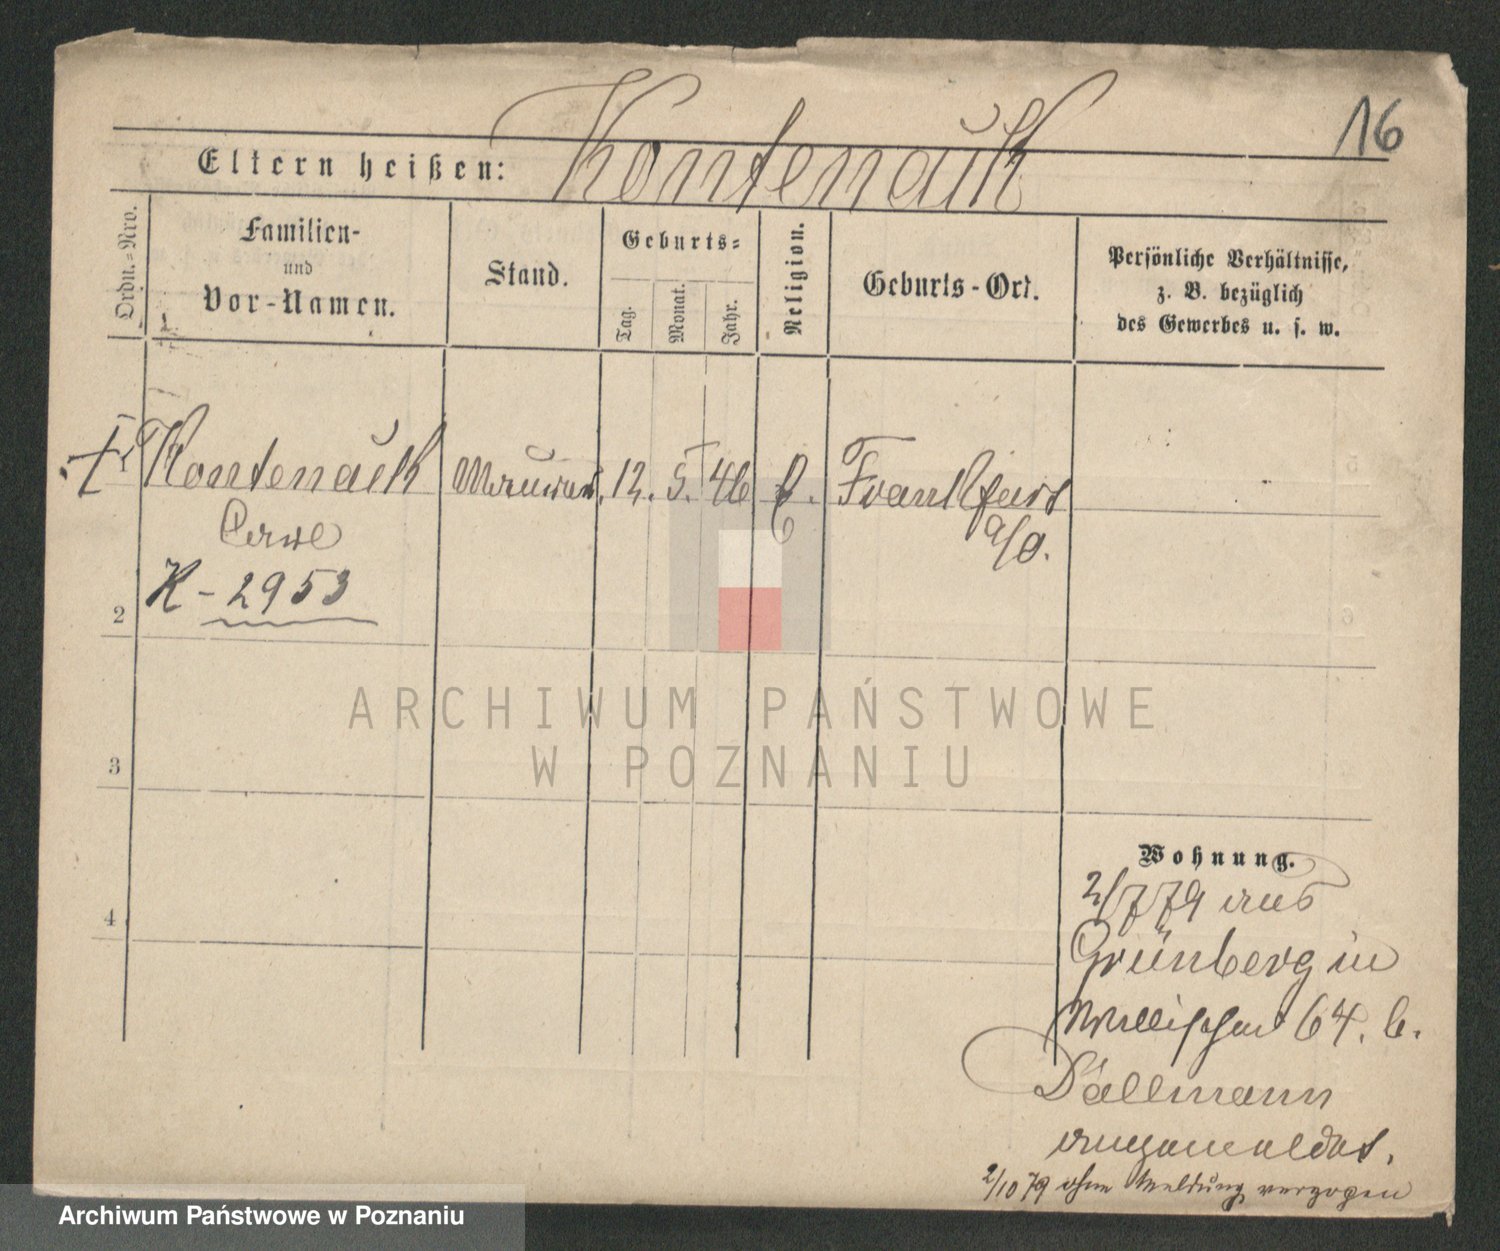 16
Eltern heißen: Kontenauk
Ordn.-Nro.
Familien-
und
Vor-Namen.
Stand.
Geburts-
Tag.
Monat.
Jahr.
Religion.
Geburts-Ort.
Persönliche Verhältnisse,
z. B. bezüglich
des Gewerbes u. s. w.
1 Kontenauk 12. 5. 46 Frankfurt
Carl a/O.
K - 2953
2
3
4
ARCHIWUM PAŃSTWOWE
W POZNANIU
Wohnung.
2/7 79 aus
Grünberg in
Wallischei 64. b.
Dallmann
angemeldet.
2/10 79 ohne Meldung verzogen
Archiwum Państwowe w Poznaniu